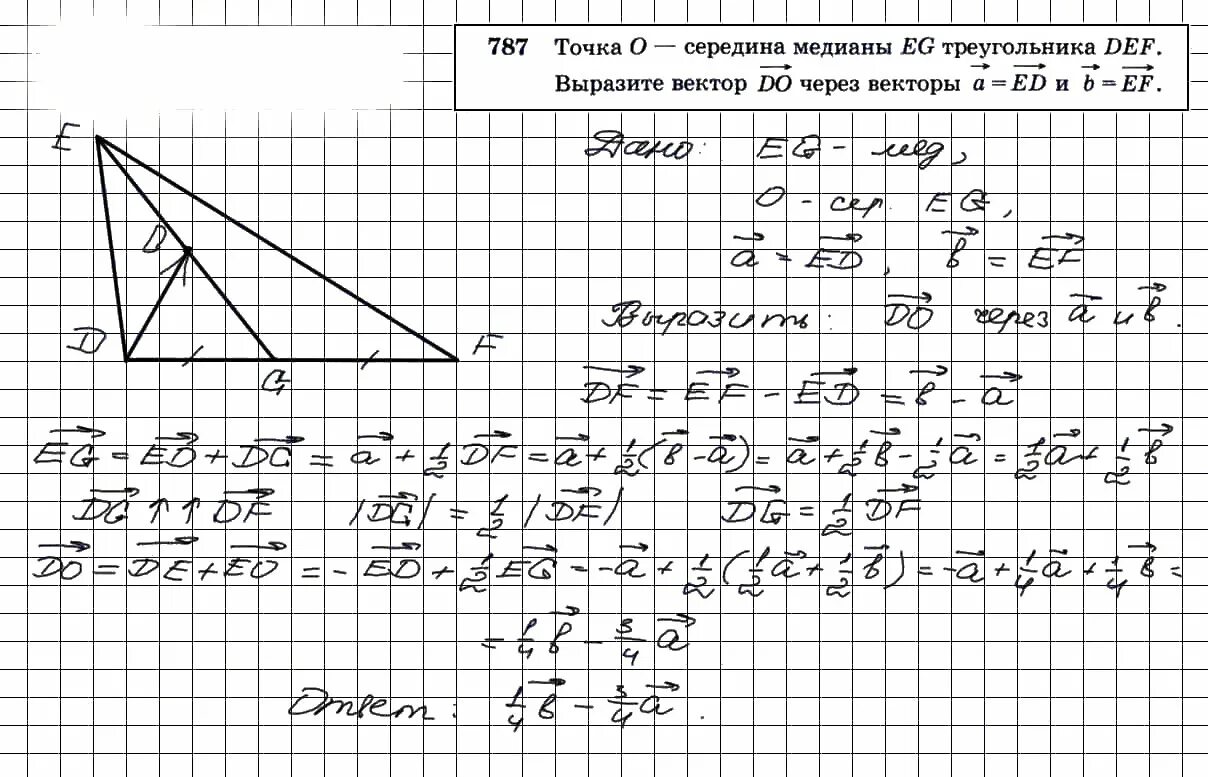 787 Точка O — середина медианы EG треугольника DEF.
Выразите вектор $\overrightarrow{DO}$ через векторы $\vec{a} = \overrightarrow{ED}$ и $\vec{b} = \overrightarrow{EF}$.
E
D
D
G
F
Дано: EG - мед,
O - сер. EG,
$\vec{a} = \overrightarrow{ED}$, $\vec{b} = \overrightarrow{EF}$
Выразить: $\overrightarrow{DO}$ через $\vec{a}$ и $\vec{b}$.
$\overrightarrow{DF} = \overrightarrow{EF} - \overrightarrow{ED} = \vec{b} - \vec{a}$
$\overrightarrow{EG} = \overrightarrow{ED} + \overrightarrow{DG} = \vec{a} + \frac{1}{2}\overrightarrow{DF} = \vec{a} + \frac{1}{2}(\vec{b} - \vec{a}) = \vec{a} + \frac{1}{2}\vec{b} - \frac{1}{2}\vec{a} = \frac{1}{2}\vec{a} + \frac{1}{2}\vec{b}$
$\overrightarrow{DG} ↑↑ \overrightarrow{DF}$ $|\overrightarrow{DG}| = \frac{1}{2}|\overrightarrow{DF}|$ $\overrightarrow{DG} = \frac{1}{2}\overrightarrow{DF}$
$\overrightarrow{DO} = \overrightarrow{DE} + \overrightarrow{EO} = -\overrightarrow{ED} + \frac{1}{2}\overrightarrow{EG} = -\vec{a} + \frac{1}{2}(\frac{1}{2}\vec{a} + \frac{1}{2}\vec{b}) = -\vec{a} + \frac{1}{4}\vec{a} + \frac{1}{4}\vec{b} =$
$= \frac{1}{4}\vec{b} - \frac{3}{4}\vec{a}$
Ответ: $\frac{1}{4}\vec{b} - \frac{3}{4}\vec{a}$.